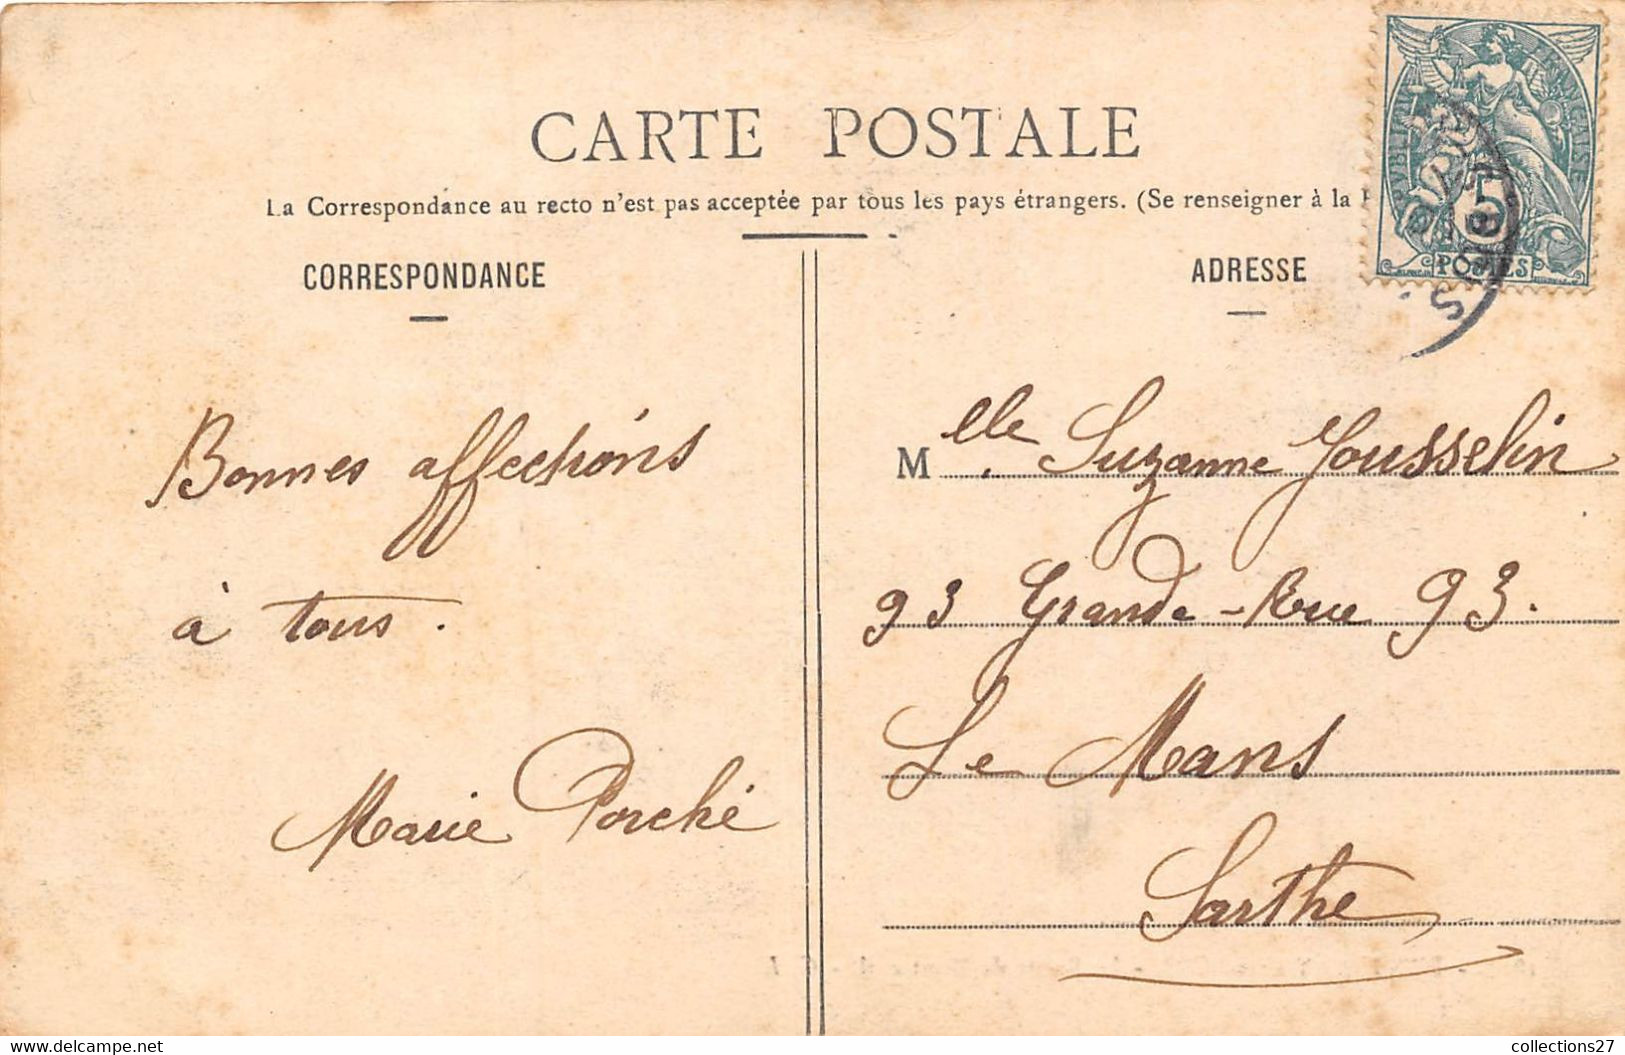 CARTE POSTALE
La Correspondance au recto n'est pas acceptée par tous les pays étrangers. (Se renseigner à la
CORRESPONDANCE
ADRESSE
5
POSTES
Bonnes affections
à tous.
Marie Porché
Melle Suzanne Jousselin
93 Grande-Rue 93.
Le Mans
Sarthe
www.delcampe.net
collections27